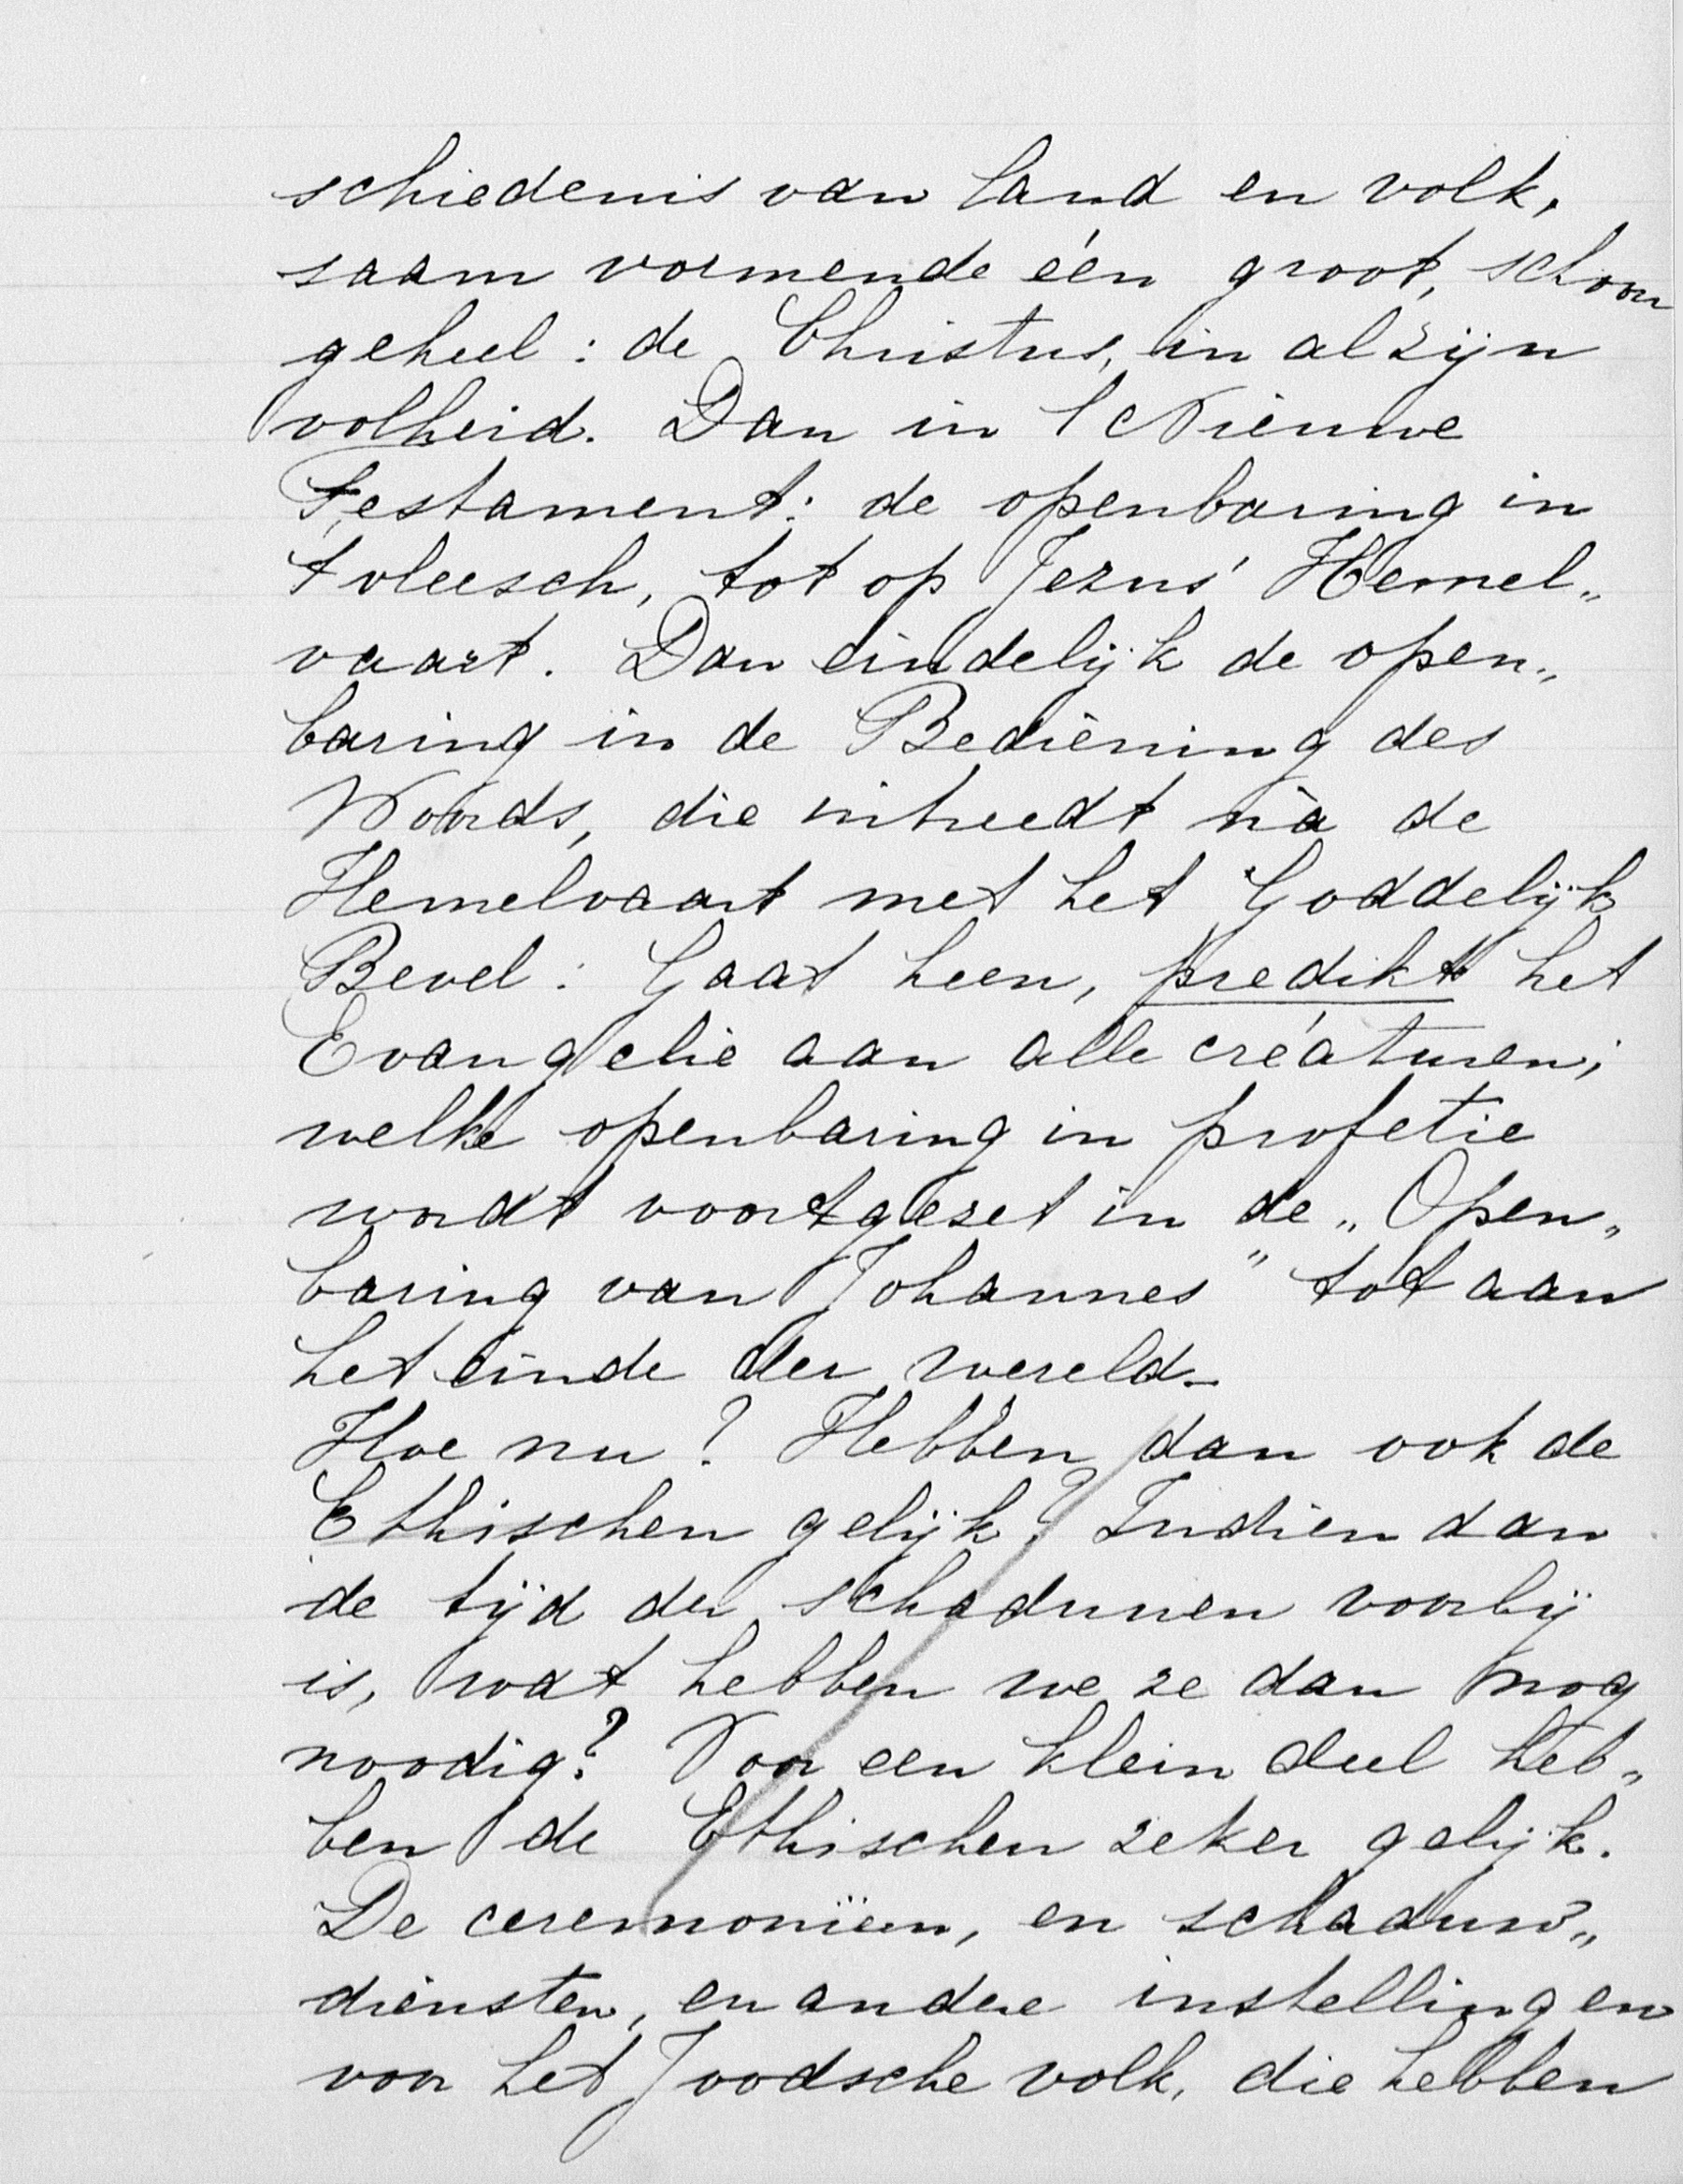 schiedenis van land en volk,
saam vormende één groot, schoon
geheel: de Christus, in al zijn
volheid. Dan in 't Nieuwe
Testament: de openbaring in
't vleesch, tot op Jezus' Hemel„
vaart. Dan eindelijk de open„
baring in de Bediening des
Woords, die intreedt nà de
Hemelvaart met het Goddelijk
Bevel: Gaat heen, predikt het
Evangelie aan alle créaturen;
welke openbaring in profetie
wordt voortgezet in de „Open„
baring van Johannes" tot aan
het einde der wereld.
Hoe nu? Hebben dan ook de
Ethischen gelijk? Indien dan
de tijd der schaduwen voorbij
is, wat hebben we ze dan nog
noodig? Voor een klein deel heb„
ben de Ethischen zeker gelijk.
De ceremoniën, en schaduw„
diensten, en andere instellingen
voor het Joodsche volk, die hebben